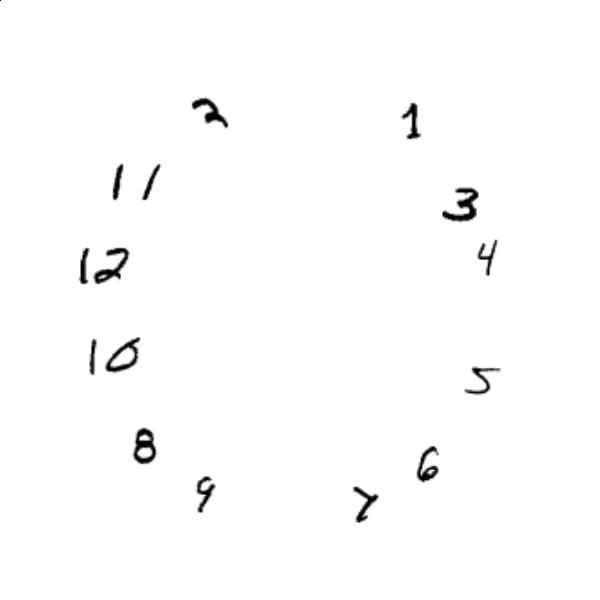 2 1
11 3
12 4
10 5
8 6
9 7